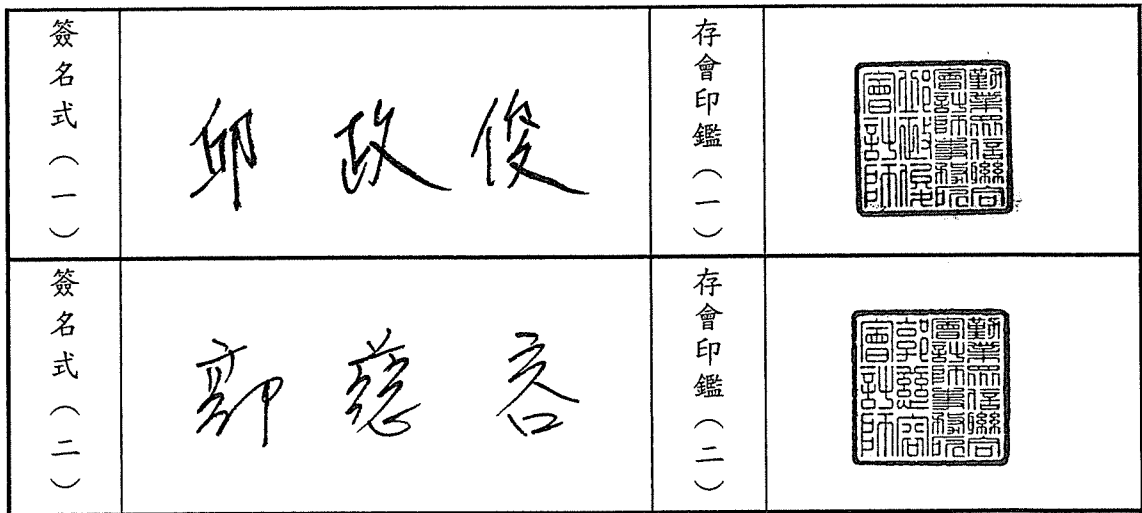 簽名式（一）
邱政俊
存會印鑑（一）
勤業眾信聯合
會計師事務所
邱政俊
會計師
簽名式（二）
郭慈容
存會印鑑（二）
勤業眾信聯合
會計師事務所
郭慈容
會計師